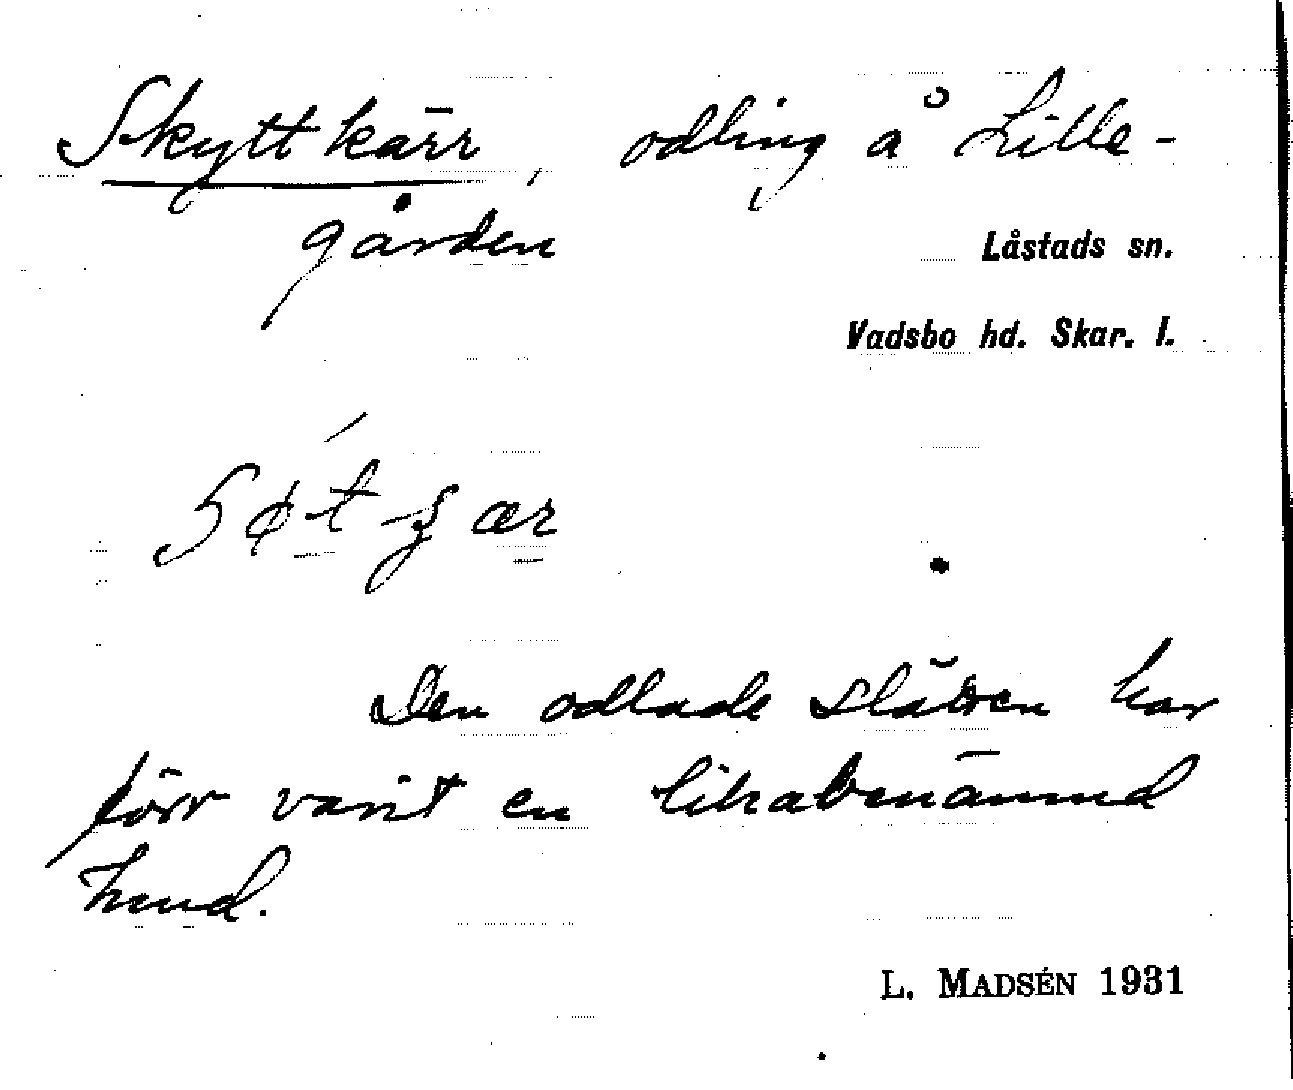 Skyttkärr, odling å Lille-
gården
Låstads sn.
Vadsbo hd. Skar. l.
Den odlade slåtten har
förr varit en likabenämnd
lund.
L. MADSÉN 1931